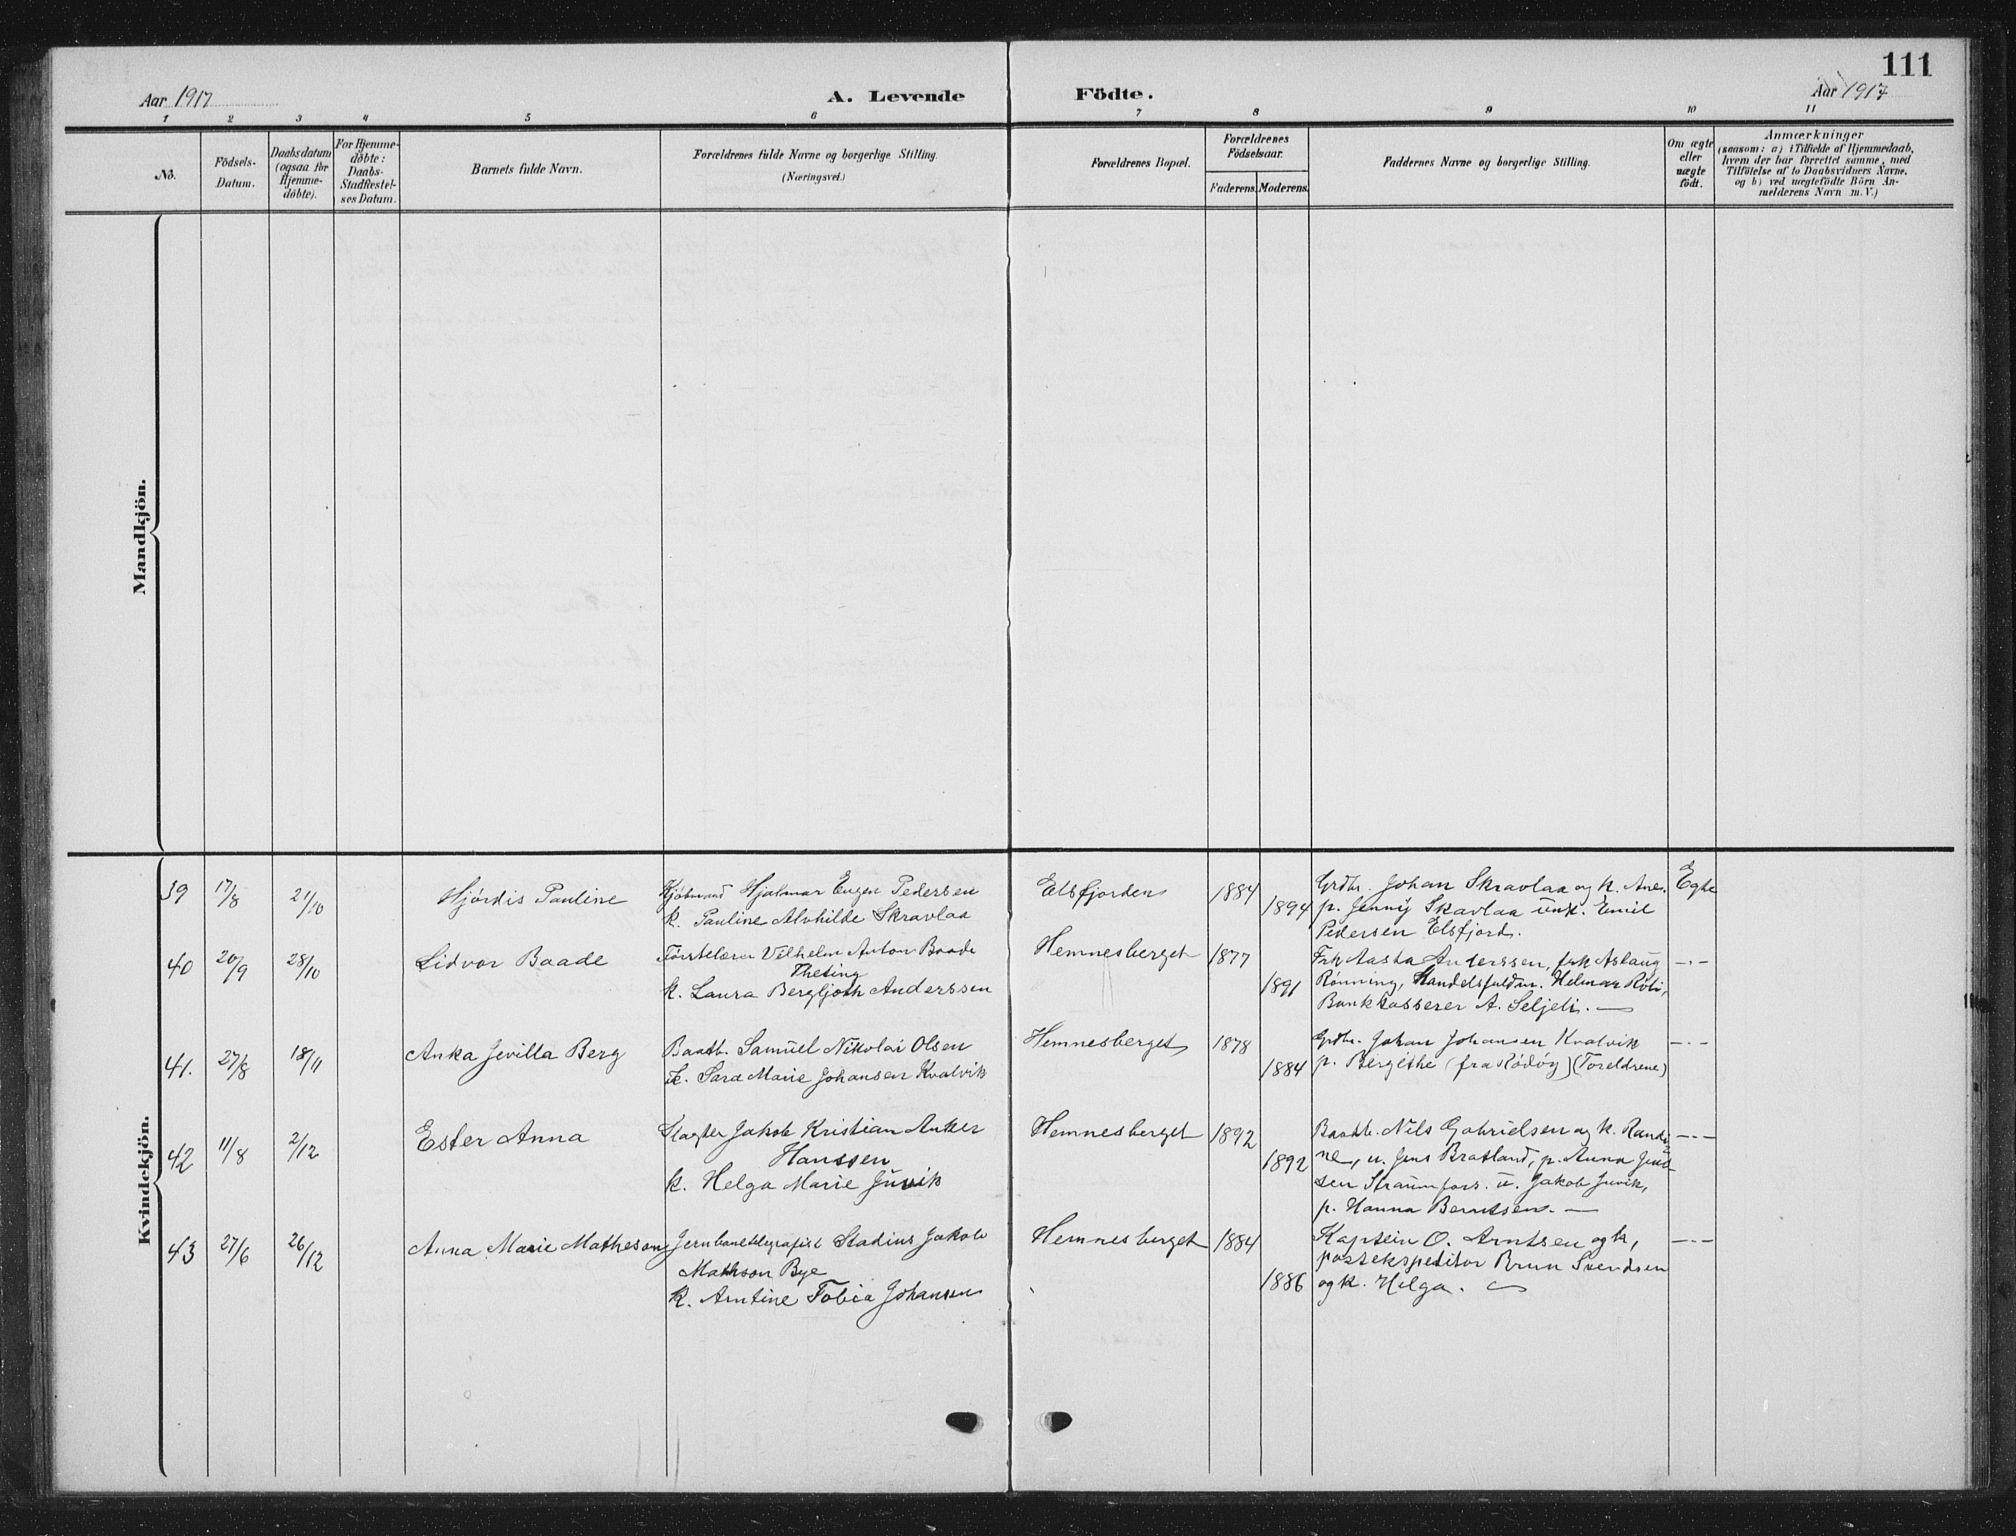 111
Aar 1917
A. Levende Födte.
Aar 1917
1 2 3 4 5 6 7 8 9 10 11
No.
Födsels-
Datum.
Daabsdatum
(ogsaa for
Hjemme-
döbte).
For Hjemme-
døbte:
Daabs-
Stadfestel-
ses Datum.
Barnets fulde Navn.
Forældrenes fulde Navne og borgerlige Stilling.
(Næringsvei.)
Forældrenes Bopæl.
Forældrenes
Födselsaar.
Faderens. Moderens.
Faddernes Navne og borgerlige Stilling.
Om ægte
eller
uægte
födt.
Anmærkninger
(saasom: a) i Tilfælde af Hjemmedaab,
hvem der har forrettet samme, med
Tilföielse af to Daabsvidners Navne,
og b) ved uægtefödte Börn An-
melderens Navn m. V.)
Mandkjön.
Kvindekjön.
39 17/8 21/10 Hjördis Pauline
Kjøbmand Hjalmar Eugen Pedersen
k. Pauline Alvhilde Skravlaa
Elsfjorden 1884 1894
Grdbr. Johan Skravlaa og k. Ane.
p. Jenny Skavlaa ünk. Emil
Pedersen Elsfjord.
Egte
40 20/9 28/10 Lidvor Baade
Førstelærer Vilhelm Anton Baade
Theting
k. Laura Bergljoth Anderssen
Hemnesberget 1877 1891
Frk Aasta Anderssen, frk Aslaug
Rønning, Handelsfuldm. Helmar Röli,
Bankkasserer A. Seljeli. —
-·-
41. 27/8 18/11 Anka Jevilla Berg
Baatb. Samüel Nikolai Olsen
k. Sara Marie Johansen Kvalvik
Hemnesberget 1878 1884
Grdbr. Johan Johansen Kvalvik
p. Bergithe (fra Rödöy) (Foreldrene)
-·-
42 11/8 2/12 Ester Anna
Slagter Jakob Kristian Anker
Hanssen
k. Helga Marie Juvik
Hemnesberget 1892 1892
Baatb. Nils Gabrielsen og k. Randi
ne, u. Jens Bratland, p. Anna Jen-
sen Straumfors. u. Jakob Juvik,
p. Hanna Berntsen. —
-·-
43 27/6 26/12 Anna Marie Matheson
Jernbanetelegrafist Stadius Jakob
Mathson Bye
k. Arntine Tobia Johansen
Hemnesberget 1884 1886
Kaptein O. Arntsen og k,
postekspeditør Brun Svendsen
og k. Helga. —
-·-